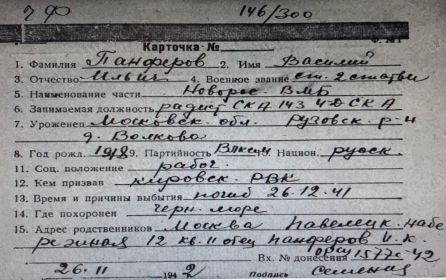 ч Ф 146/300
Ф. № 1
Карточка №
1. Фамилия Панферов 2. Имя Василий
3. Отчество Ильич 4. Военное звание ст. 2 статьи
5. Наименование части Новорос. ВМБ
6. Занимаемая должность радист СКА 143 4 Д СКА
7. Уроженец Московск. обл. Рузовск. р-н
д. Волково
8. Год рожд. 1918 9. Партийность ВЛКСМ 10. Национ. русск.
11. Соц. положение рабоч.
12. Кем призван Кировск. РВК
13. Время и причины выбытия погиб 26.12.41
14. Где похоронен Черн. море
15. Адрес родственников Москва Павелецк. набе
режная 12 кв. 11 отец Панферов И. К.
Вх. № донесения 1577с-42
26.11 1942 Подпись